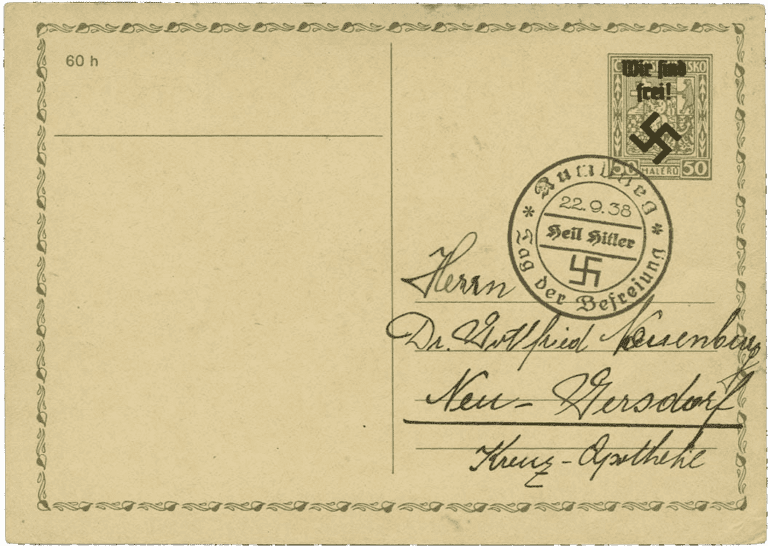 60 h
Wir sind
frei!
50 HALÉŘŮ 50
Rumburg
22.9.38
Heil Hitler
Tag der Befreiung
Herrn
Dr. Gottfried
Neu-Gersdorf
Kreuz-Apotheke